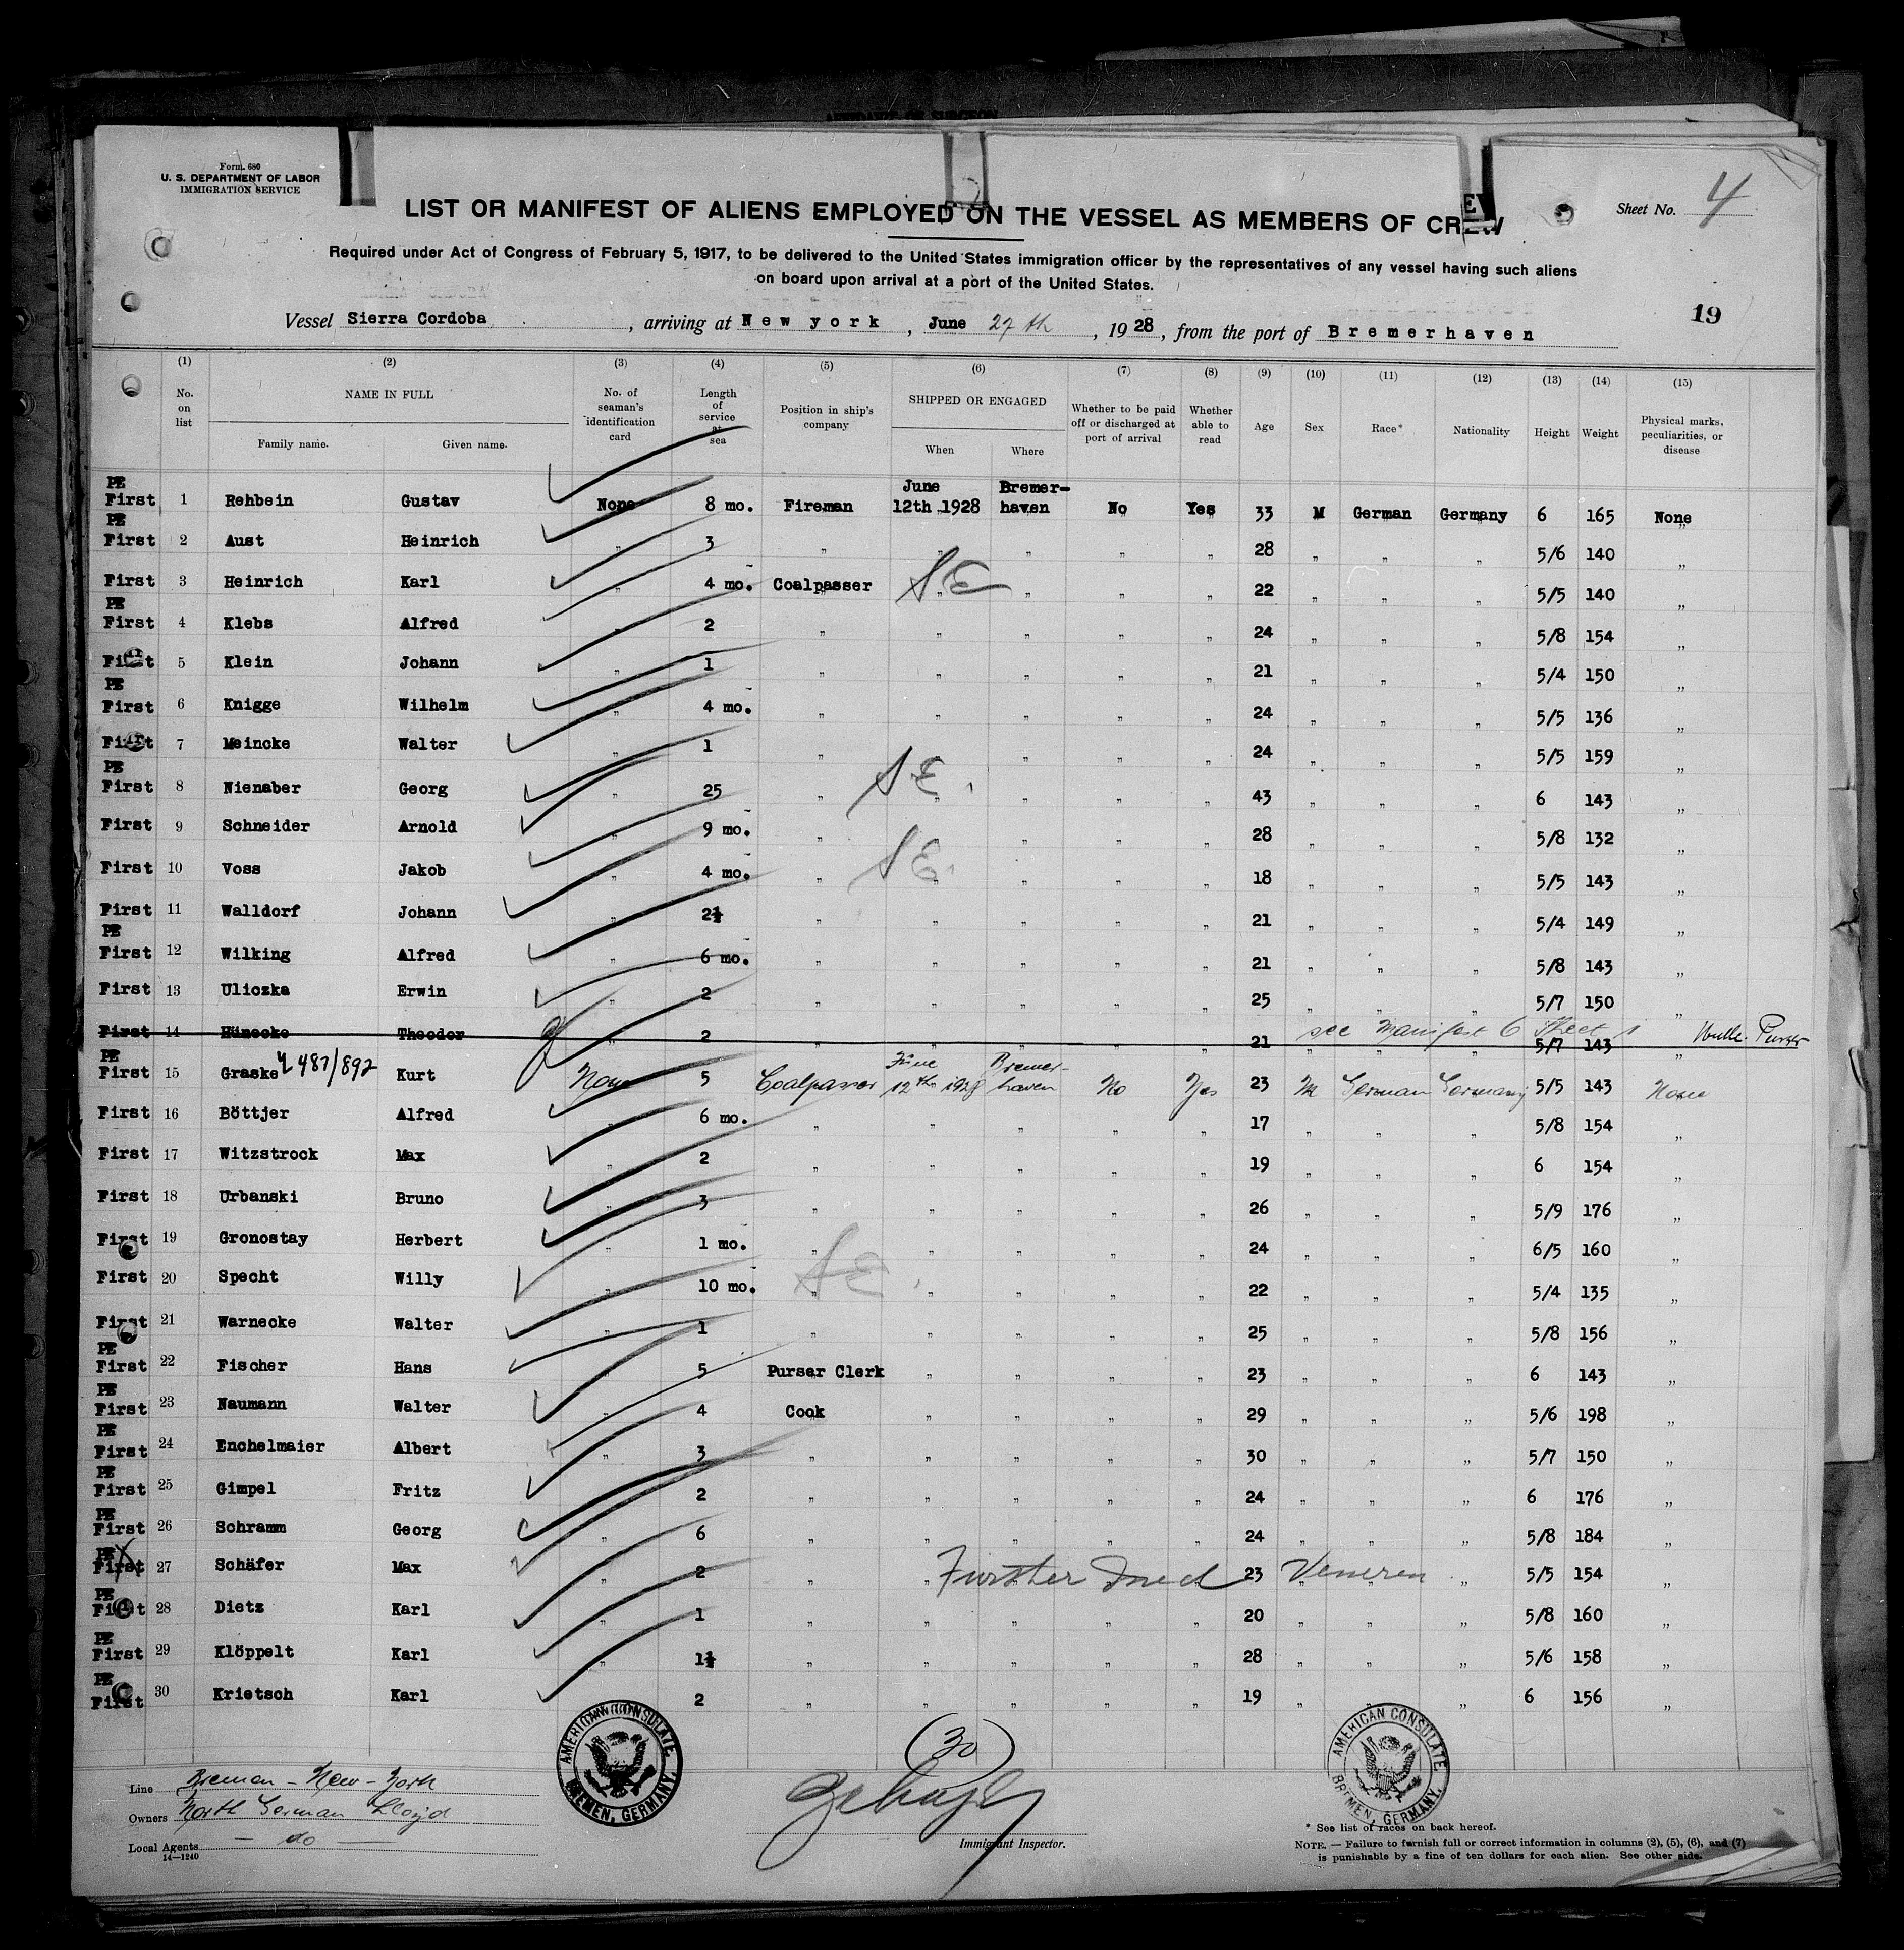 Form 680
U. S. DEPARTMENT OF LABOR
IMMIGRATION SERVICE
Sheet No. 4
LIST OR MANIFEST OF ALIENS EMPLOYED ON THE VESSEL AS MEMBERS OF CREW
Required under Act of Congress of February 5, 1917, to be delivered to the United States immigration officer by the representatives of any vessel having such aliens
on board upon arrival at a port of the United States.
19
Vessel Sierra Cordoba, arriving at New york, June 27 th, 1928, from the port of Bremerhaven
(1) (2) (3) (4) (5) (6) (7) (8) (9) (10) (11) (12) (13) (14) (15)
No. on list NAME IN FULL Family name. Given name. No. of seaman's identification card Length of service at sea Position in ship's company SHIPPED OR ENGAGED When Where Whether to be paid off or discharged at port of arrival Whether able to read Age Sex Race* Nationality Height Weight Physical marks, peculiarities, or disease
PE First 1 Rehbein Gustav None 8 mo. Fireman June 12th 1928 Bremerhaven No Yes 33 M German Germany 6 165 None
PE First 2 Aust Heinrich " 3 " " " " " 28 " " " 5/6 140 "
First 3 Heinrich Karl " 4 mo. Coalpasser SE " " " " 22 " " " 5/5 140 "
PE First 4 Klebs Alfred " 2 " " " " " 24 " " " 5/8 154 "
First 5 Klein Johann " 1 " " " " " 21 " " " 5/4 150 "
PE First 6 Knigge Wilhelm " 4 mo. " " " " " 24 " " " 5/5 136 "
First 7 Meincke Walter " 1 " " " " " 24 " " " 5/5 159 "
PE First 8 Nienaber Georg " 25 " SE. " " " " 43 " " " 6 143 "
First 9 Schneider Arnold " 9 mo. " " " " " 28 " " " 5/8 132 "
First 10 Voss Jakob " 4 mo. " SE. " " " " 18 " " " 5/5 143 "
First 11 Walldorf Johann " 2½ " " " " " 21 " " " 5/4 149 "
PE First 12 Wilking Alfred " 6 mo. " " " " " 21 " " " 5/8 143 "
First 13 Ulioska Erwin " 2 " " " " " 25 " " " 5/7 150 "
First 14 Hünecke Theodor 2 " " " " " 21 see Manifest 6 Sheet 1 " " " 5/7 143 " Purser
PE First 15 Graske 487/892 Kurt None 5 Coalpasser June 12th 1928 Bremerhaven No Yes 23 M German Germany 5/5 143 None
First 16 Böttjer Alfred " 6 mo. " " " " " 17 " " " 5/8 154 "
First 17 Witzstrock Max " 2 " " " " " 19 " " " 6 154 "
First 18 Urbanski Bruno " 3 " " " " " 26 " " " 5/9 176 "
First 19 Gronostay Herbert " 1 mo. " " " " " 24 " " " 6/5 160 "
First 20 Specht Willy " 10 mo. " SE. " " " " 22 " " " 5/4 135 "
First 21 Warnecke Walter " 1 " " " " " 25 " " " 5/8 156 "
PE First 22 Fischer Hans " 5 Purser Clerk " " " " 23 " " " 6 143 "
PE First 23 Naumann Walter " 4 Cook " " " " 29 " " " 5/6 198 "
PE First 24 Enchelmaier Albert " 3 " " " " " 30 " " " 5/7 150 "
PE First 25 Gimpel Fritz " 2 " " " " " 24 " " " 6 176 "
PE First 26 Schramm Georg " 6 " " " " " 24 " " " 5/8 184 "
PE First X 27 Schäfer Max " 2 " " " " " 23 " " " 5/5 154 "
PE First 28 Dietz Karl " 1 " " " " " 20 " " " 5/8 160 "
PE First 29 Klöppelt Karl " 1½ " " " " " 28 " " " 5/6 158 "
PE First 30 Krietsch Karl " 2 " " " " " 19 " " " 6 156 "
AMERICAN CONSULATE, BREMEN, GERMANY.
(30)
AMERICAN CONSULATE, BREMEN, GERMANY.
Line Bremen - New-York
Owners North German Lloyd
Local Agents — do —
14—1240
Immigrant Inspector.
* See list of races on back hereof.
NOTE. — Failure to furnish full or correct information in columns (2), (5), (6), and (7)
is punishable by a fine of ten dollars for each alien. See other side.